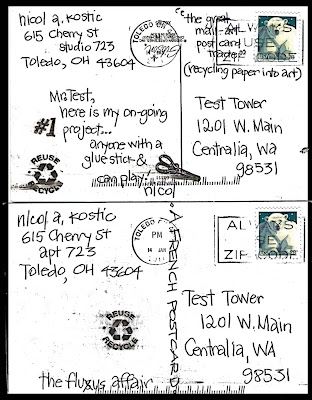 nicol a. kostic
615 Cherry St
studio 723
Toledo, OH 43604
TOLEDO OH
"the great
mail-art
post card
trade"
(recycling paper into art)
ALWAYS
USE
ZIP CODE
Mr. Test,
here is my on-going
project...
anyone with a
glue stick &
can play!
nicol
#1
REUSE
RECYCLE
Test Tower
1201 W. Main
Centralia, WA
98531
nicol a. kostic
615 Cherry St
apt 723
Toledo, OH 43604
TOLEDO
PM
14 JAN
ALWAYS
USE
ZIP CODE
A FRENCH POSTCARD
REUSE
RECYCLE
Test Tower
1201 W. Main
Centralia, WA
98531
the fluxus affair